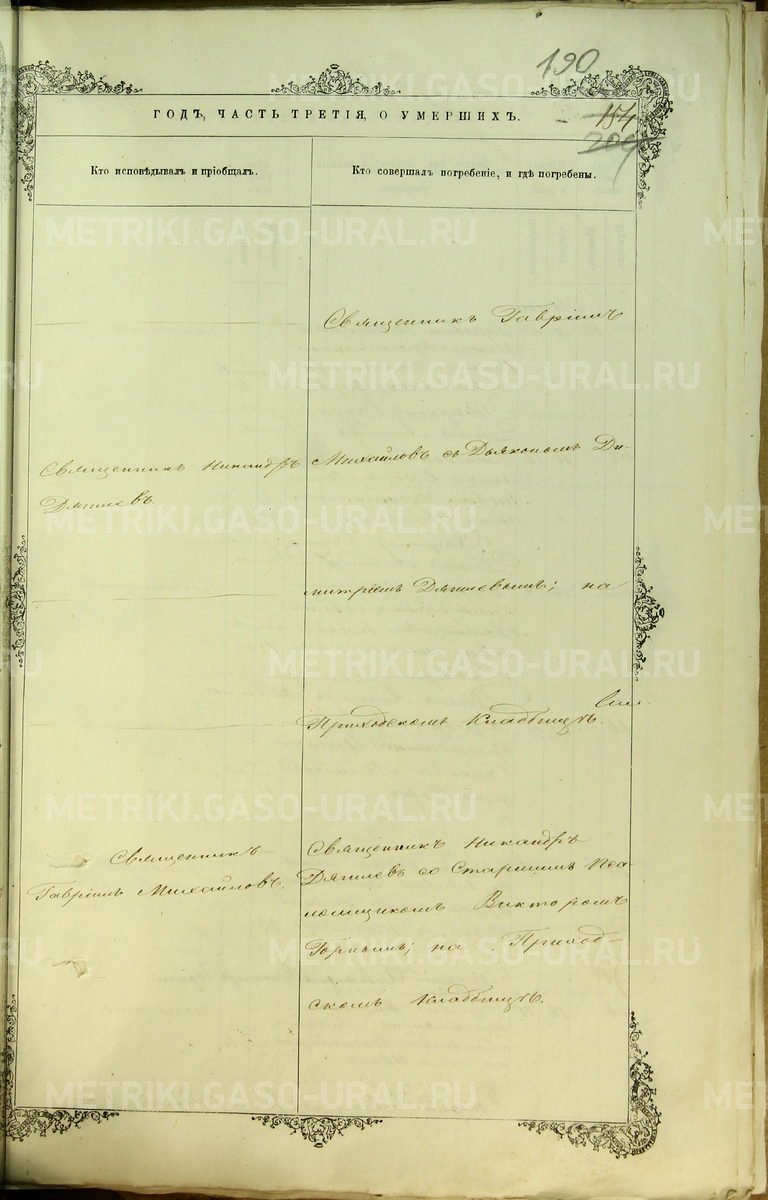 190
ГОДЪ, ЧАСТЬ ТРЕТІЯ, О УМЕРШИХЪ.
154
209
Кто исповѣдывалъ и пріобщалъ.
Кто совершалъ погребеніе, и гдѣ погребены.
Священникъ Гавріилъ
Священникъ Никандръ
Дягилевъ.
Михайловъ съ Дьякономъ Ди-
митріемъ Дягилевымъ; на
Приходскомъ Кладбищѣ.
Священникъ
Гавріилъ Михайловъ.
Священникъ Никандръ
Дягилевъ со Старшимъ Пса-
ломщикомъ Викторомъ
Горнымъ; на Приход-
скомъ Кладбищѣ.
METRIKI.GASO-URAL.RU